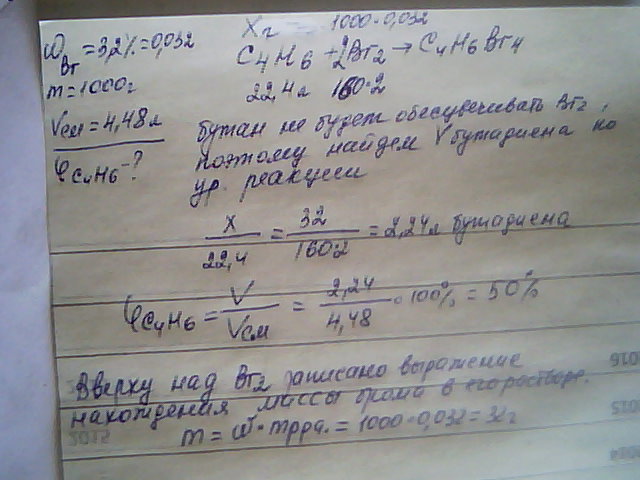 ω Br = 3,2% = 0,032
m = 1000г
Vсм = 4,48л
φC4H6 - ?
Xг 1000·0,032
C4H6 + 2Br2 → C4H6Br4
22,4л 160·2
бутан не будет обесцвечивать Br2,
поэтому найдем V бутадиена по
ур. реакции
x/22,4 = 32/160·2 = 2,24л бутадиена
φC4H6 = V/Vсм = 2,24/4,48 · 100% = 50%
Вверху над Br2 записано выражение
нахождения массы брома в его растворе.
m = ω · mрра. = 1000·0,032 = 32г